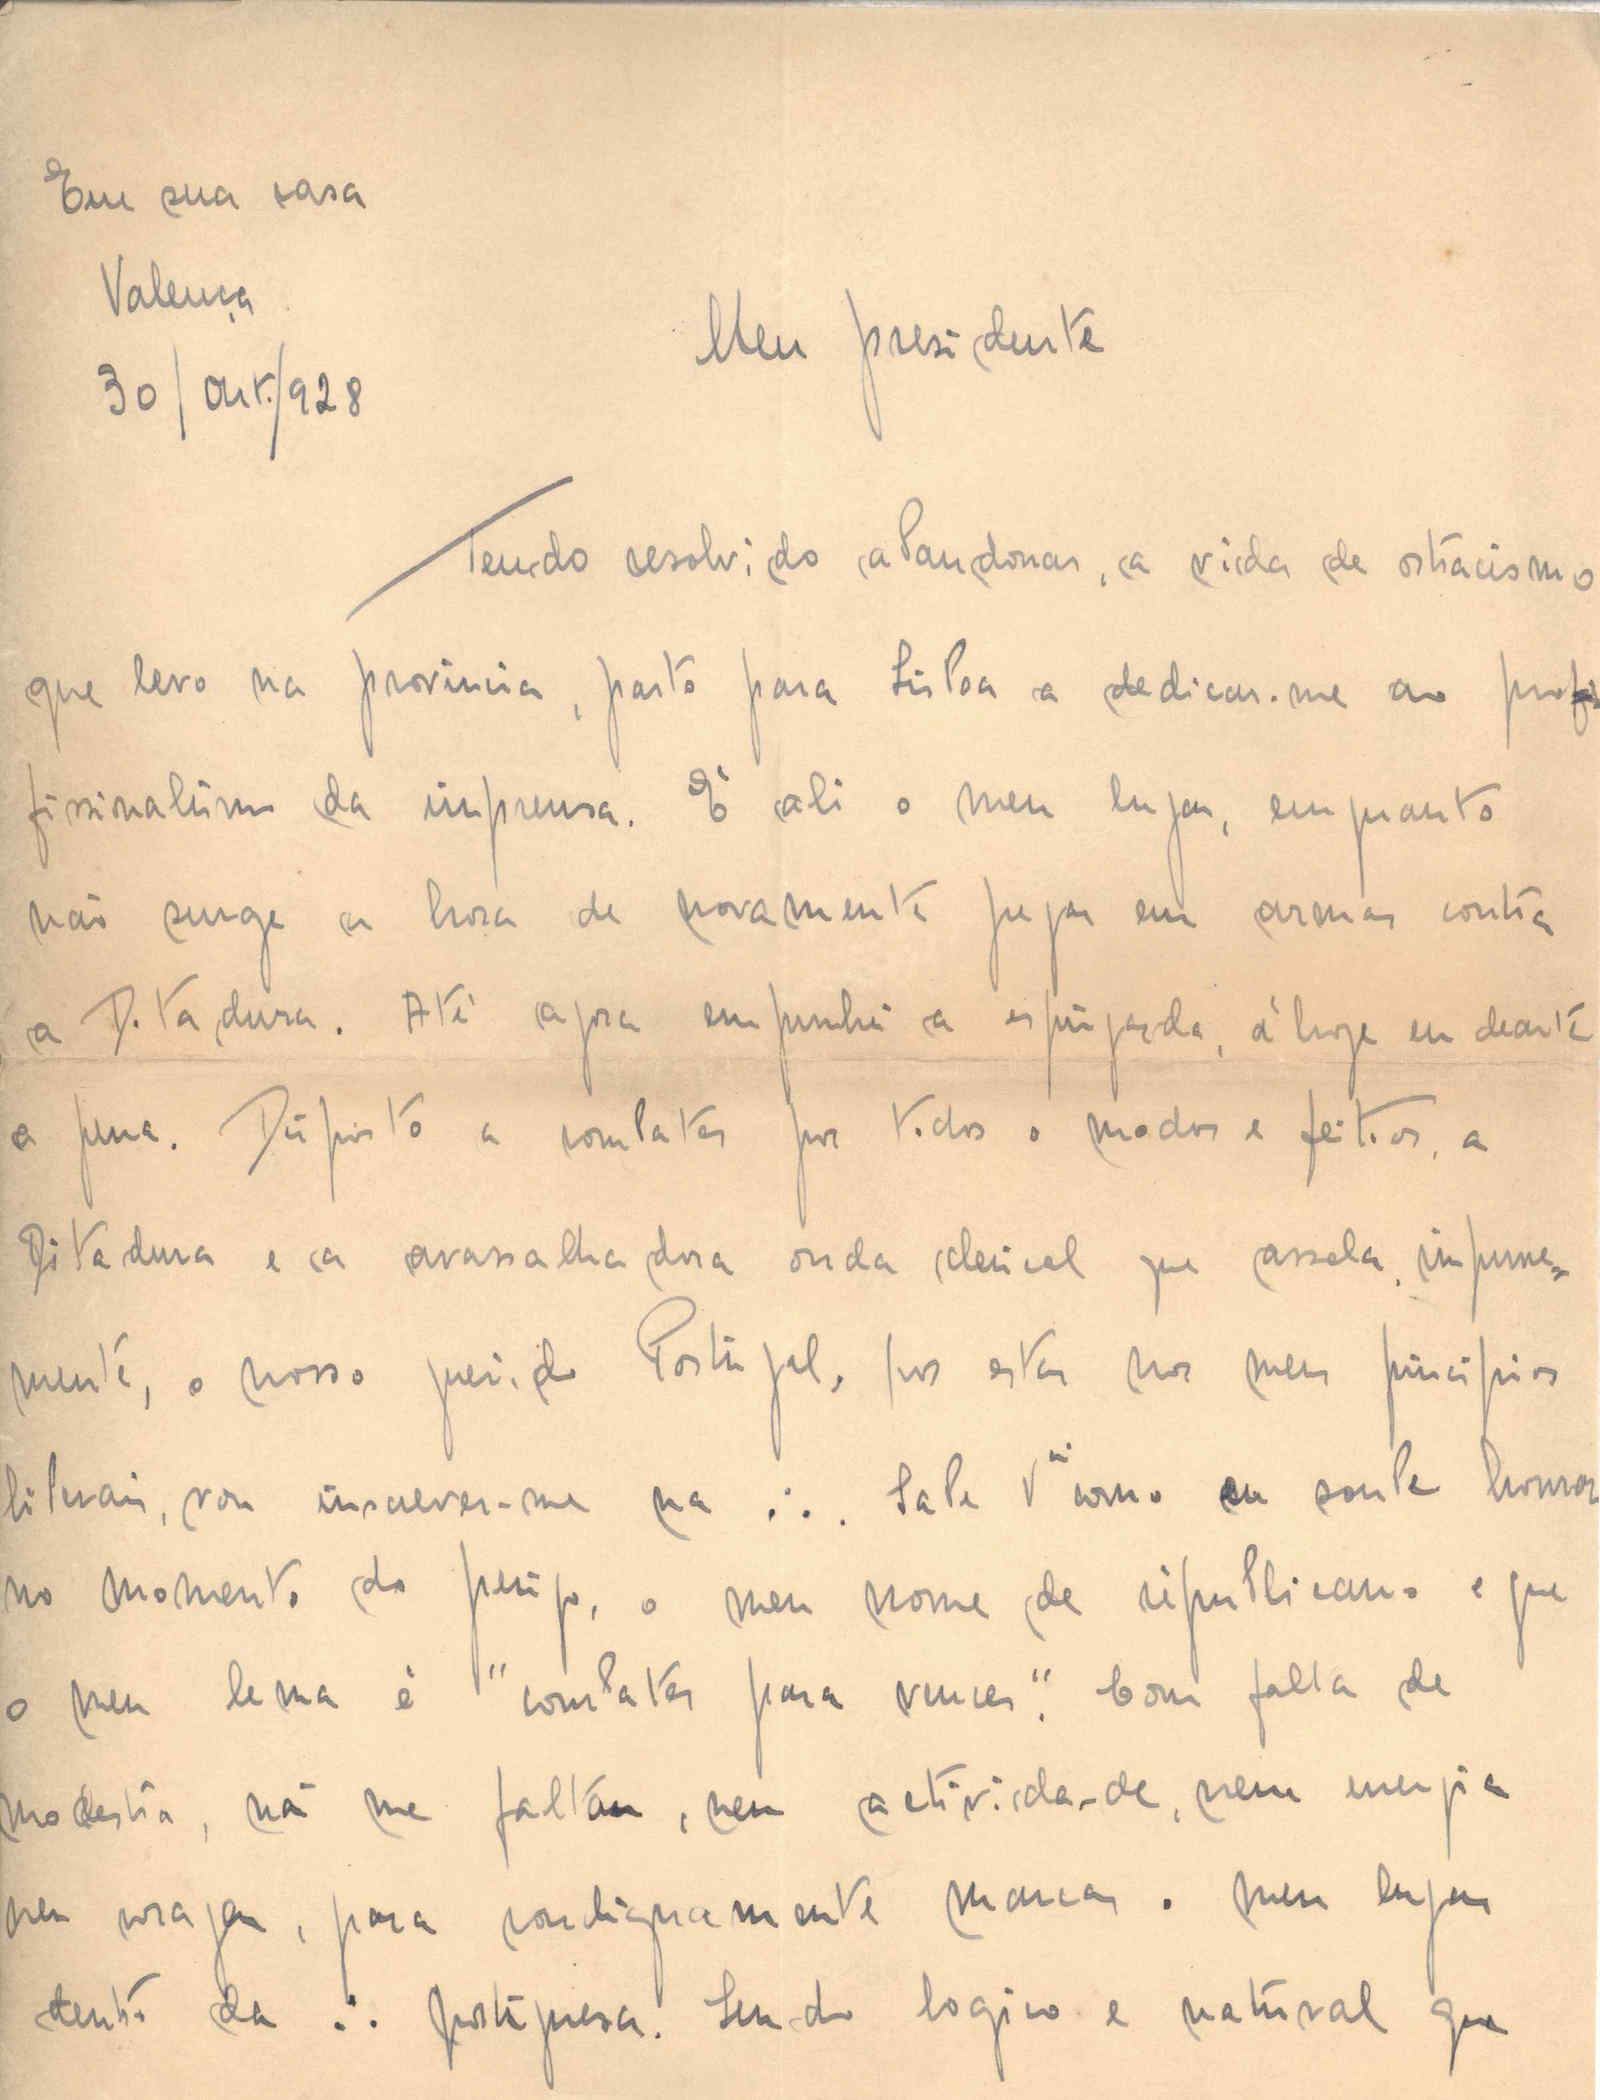 Em sua casa
Valença
30/Out./928
Meu presidente
Tendo resolvido abandonar, a vida de ostracismo
que levo na provincia, parto para Lisboa a dedicar-me ao profis
fissionalismo da imprensa. É ali o meu lugar, emquanto
não surge a hora de novamente pegar em armas contra
a Ditadura. Até agora empunhei a espingarda, d'hoje em deante
a pena. Disposto a combater por todos o modos e feitios, a
Ditadura e a avassalhadora onda clerical que assola, impune-
mente, o nosso querido Portugal, por estar nos meus principios
liberais, vou inscrever-me na ∴. Sabe V. como eu soube honrar
no momento do perigo, o meu nome de republicano e que
o meu lema é "combater para vencer". Com falta de
modestia, não me faltam, nem actividade, nem energia
nem coragem, para condignamente marcar o meu lugar
dentro da ∴ portuguesa. Sendo logico e natural que